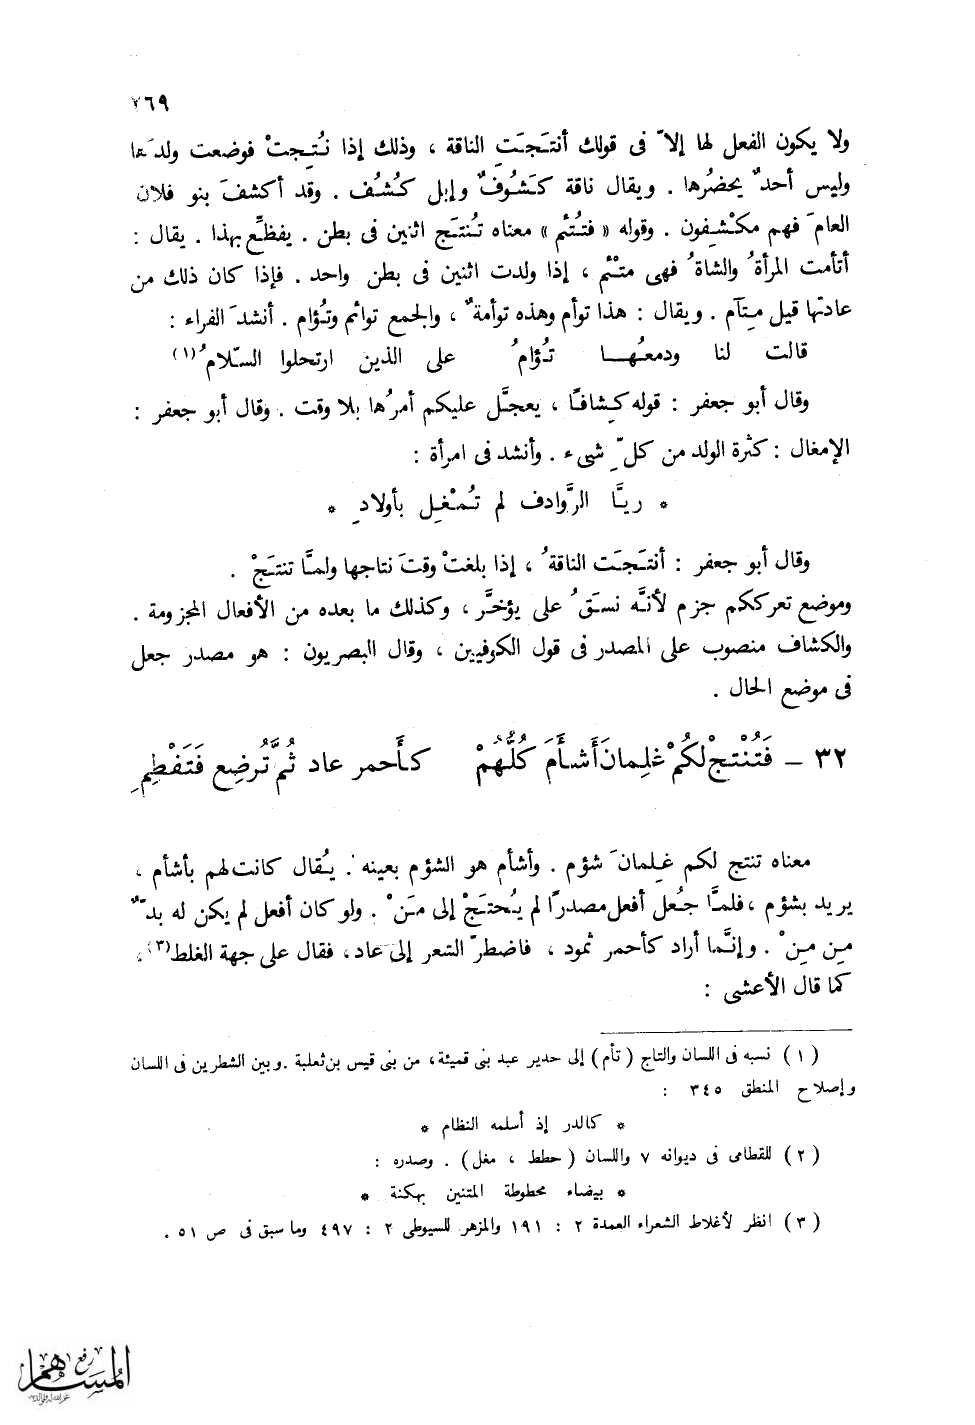 ٢٦٩
ولا يكون الفعل لها إلاّ فى قولك أنتَجَتِ الناقة ، وذلك إذا نُتِجتْ فوضعت ولدَها
وليس أحدٌ يحضُرها . ويقال ناقة كَشُوفٌ وإبل كُشُف . وقد أكشفَ بنو فلان
العامَ فهم مكْشِفون . وقوله « فتُتْم » معناه تُنتَج اثنين فى بطن . يفظِّع بهذا . يقال :
أتأمت المرأةُ والشاةُ فهى متْئم ، إذا ولدت اثنين فى بطن واحد . فإذا كان ذلك من
عادتها قيل مِتآم . ويقال : هذا توأم وهذه توأمةٌ ، والجمع توائم وتُؤام . أنشدَ الفراء :
قالت لنا ودمعُهـا تُؤامُ على الذين ارتحلوا السّلامُ(١)
وقال أبو جعفر : قوله كِشافًا ، يعجَّل عليكم أمرُها بلا وقت . وقال أبو جعفر :
الإمغال : كثرة الولد من كلّ شىء . وأنشد فى امرأة :
* ريَّا الرَّوادف لم تُمْغِل بأولادِ *
وقال أبو جعفر : أنتَجَت الناقةُ ، إذا بلغتْ وقتَ نتاجها ولمَّا تنتَجْ .
وموضع تعرككم جزم لأنَّه نسَقُ على يؤخَّر ، وكذلك ما بعده من الأفعال المجزومة .
والكشاف منصوب على المصدر فى قول الكوفيين ، وقال البصريون : هو مصدر جعل
فى موضع الحال .
٣٢ – فَتُنْتجْ لكُمْ غلِمانَ أَشأَمَ كُلُّهُمْ كأَحمر عاد ثُمَّ تُرضِع فَتَفْطِمِ
معناه تنتج لكم غِلمانَ شؤم . وأشأم هو الشؤم بعينه . يُقال كانت لهم بأشأم ،
يريد بشؤم ، فلمَّا جُعل أفعل مصدرًا لم يُحتَجْ إلى مَنْ . ولو كان أفعل لم يكن له بدٌّ
مِن مِنْ . وإنَّما أراد كأحمر ثمود ، فاضطرّ الشعر إلى عاد، فقال على جهة الغلط(٣)،
كما قال الأعشى :
( ١ ) نسبه فى اللسان والتاج ( تأم ) إلى حدير عبد بنى قميئة، من بنى قيس بن ثعلبة . وبين الشطرين فى اللسان
وإصلاح المنطق ٣٤٥ :
* كالدر إذ أسلمه النظام *
( ٢ ) للقطامى فى ديوانه ٧ واللسان ( حطط ، مغل ) . وصدره :
* بيضاء محطوطة المتنين بهكنة *
( ٣ ) انظر لأغلاط الشعراء العمدة ٢ : ١٩١ والمزهر للسيوطى ٢ : ٤٩٧ وما سبق فى ص ٥١ .